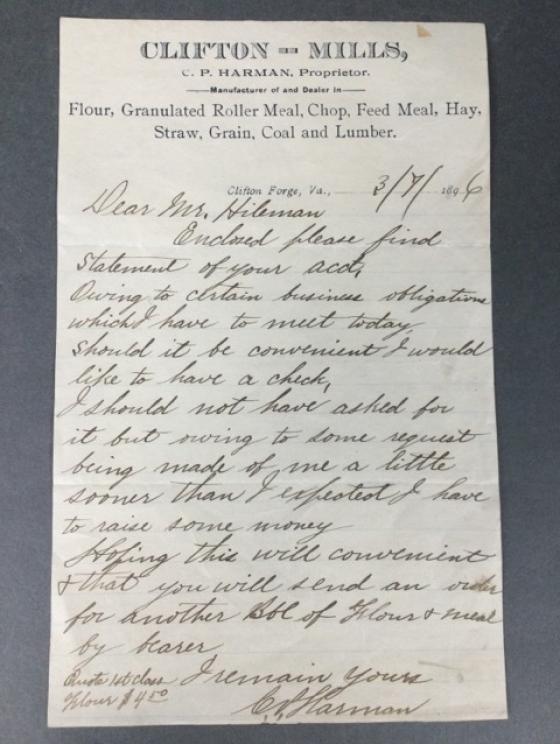 CLIFTON MILLS,
C. P. HARMAN, Proprietor.
Manufacturer of and Dealer in
Flour, Granulated Roller Meal, Chop, Feed Meal, Hay,
Straw, Grain, Coal and Lumber.
Clifton Forge, Va., 3/7/ 1896
Dear Mr. Hileman
Enclosed please find
Statement of your acct,
Owing to certain business obligations
which I have to meet today,
Should it be convenient I would
like to have a check,
I should not have asked for
it but owing to some request
being made of me a little
sooner than I expected I have
to raise some money
Hoping this will convenient
& that you will send an order
for another Bbl of Flour & meal
by bearer
Quote 1st class I remain yours
Flour $4.50 C. P. Harman